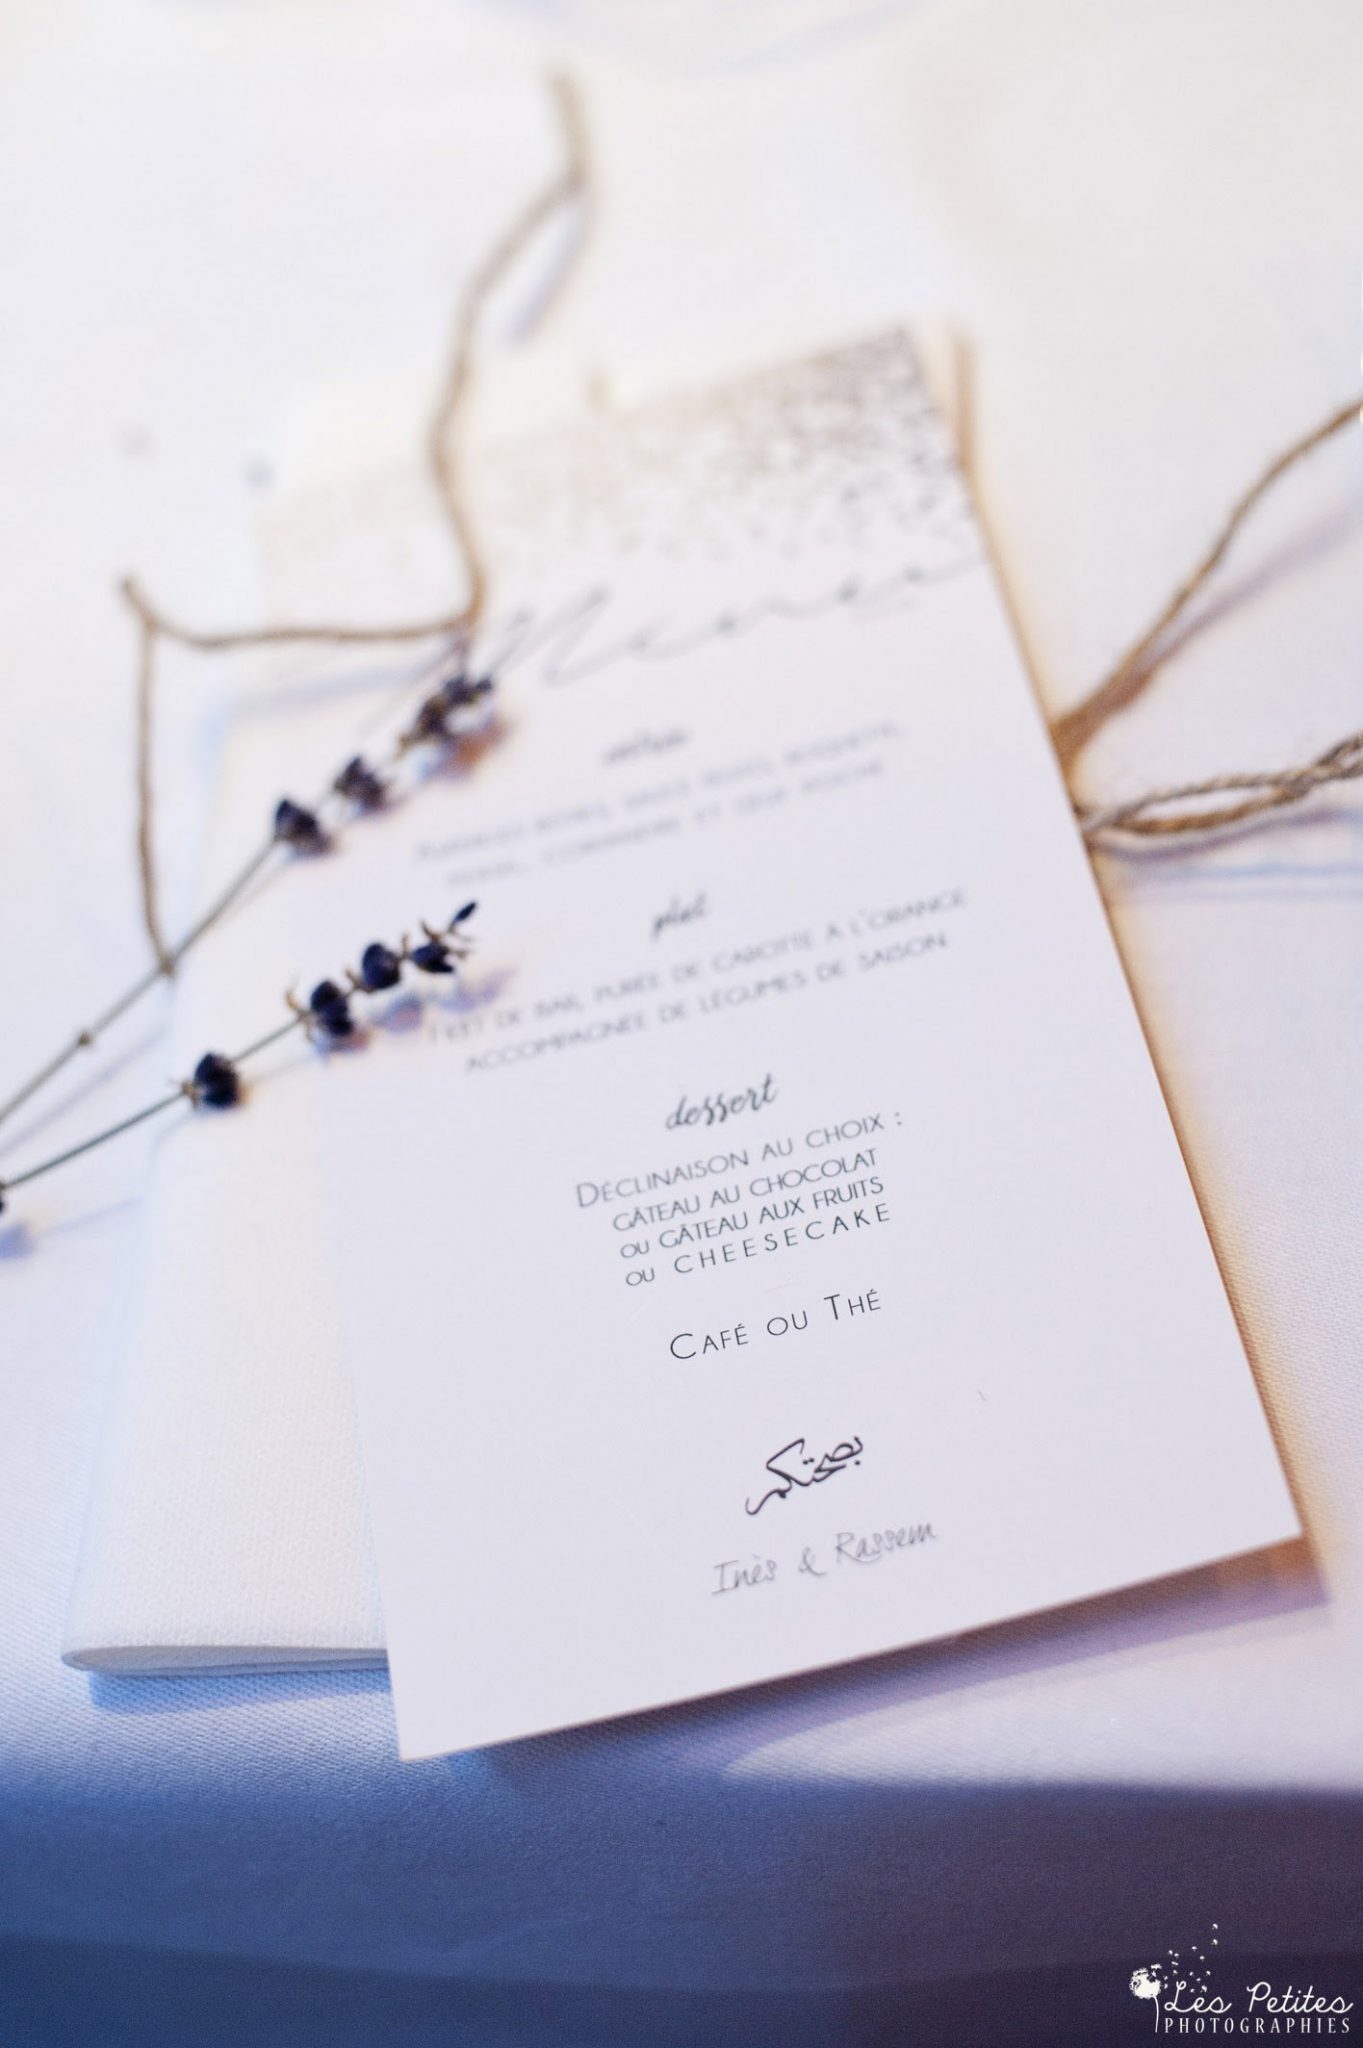 Menu
entrée
plat
Filet de bar, purée de carotte à l'orange
accompagnée de légumes de saison
dessert
Déclinaison au choix :
gâteau au chocolat
ou gâteau aux fruits
ou CHEESECAKE
Café ou Thé
بصحتكم
Inès & Rassem
Les Petites
PHOTOGRAPHIES